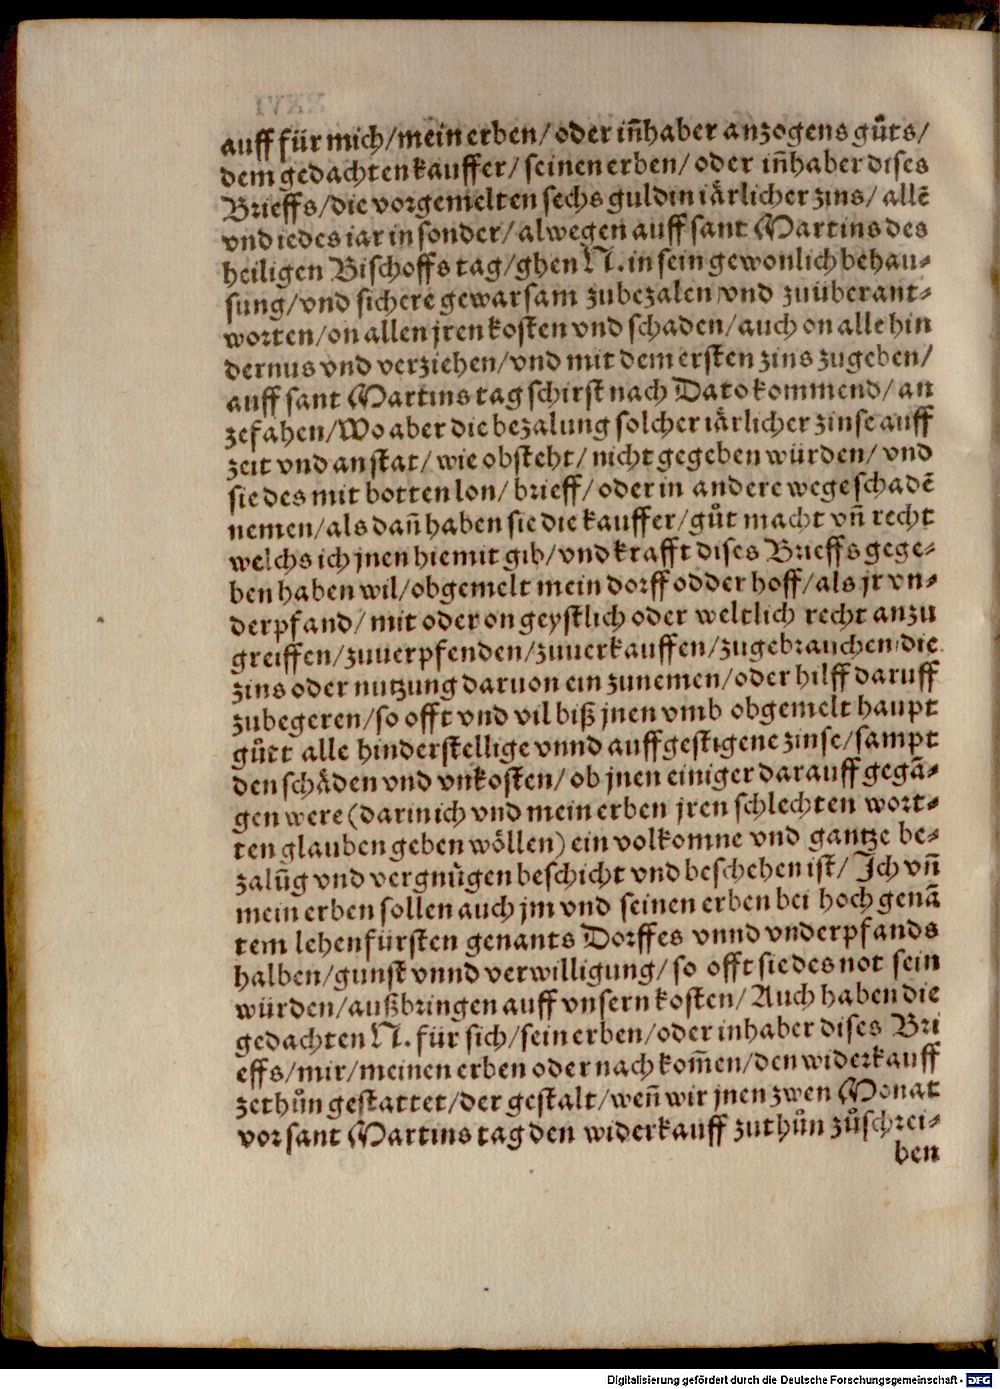 auff für mich/mein erben/oder iñhaber anzogens gůts/
dem gedachten kauffer/seinen erben/oder iñhaber dises
Brieffs/die vorgemelten sechs guldin iärlicher zins/allẽ
vnd iedes iar in sonder/alwegen auff sant Martins des
heiligen Bischoffs tag/ghen N. in sein gewonlich behau-
sung/vnd sichere gewarsam zubezalen vnd zuüberant-
worten/on allen jren kosten vnd schaden/auch on alle hin
dernus vnd verziehen/vnd mit dem ersten zins zugeben/
auff sant Martins tag schirst nach Dato kommend/an
zefahen/Wo aber die bezalung solcher iärlicher zinse auff
zeit vnd an stat/wie obsteht/nicht gegeben würden/vnd
sie des mit botten lon/brieff/oder in andere wege schadẽ
nemen/als dañ haben sie die kauffer/gůt macht vñ recht
welchs ich jnen hiemit gib/vnd krafft dises Brieffs gege-
ben haben wil/obgemelt mein dorff odder hoff/als jr vn-
derpfand/mit oder on geystlich oder weltlich recht anzu
greiffen/zuuerpfenden/zuuerkauffen/zugebrauchen/die
zins oder nutzung daruon ein zunemen/oder hilff daruff
zubegeren/so offt vnd vil biß jnen vmb obgemelt haupt
gůtt alle hinderstellige vnnd auffgestigene zinse/sampt
den schäden vnd vnkosten/ob jnen einiger darauff gegã-
gen were (darin ich vnd mein erben jren schlechten wort-
ten glauben geben wöllen) ein volkomne vnd gantze be-
zalũg vnd vergnůgen beschicht vnd beschehen ist/Ich vñ
mein erben sollen auch jm vnd seinen erben bei hoch genã
tem lehenfürsten genants Dorffes vnnd vnderpfands
halben/gunst vnnd verwilligung/so offt sie des not sein
würden/außbringen auff vnsern kosten/Auch haben die
gedachten N. für sich/sein erben/oder inhaber dises Bri
effs/mir/meinen erben oder nachkom̃en/den widerkauff
zethůn gestattet/der gestalt/weñ wir jnen zwen Monat
vor sant Martins tag den widerkauff zuthůn zůschrei-
ben
Digitalisierung gefördert durch die Deutsche Forschungsgemeinschaft - DFG